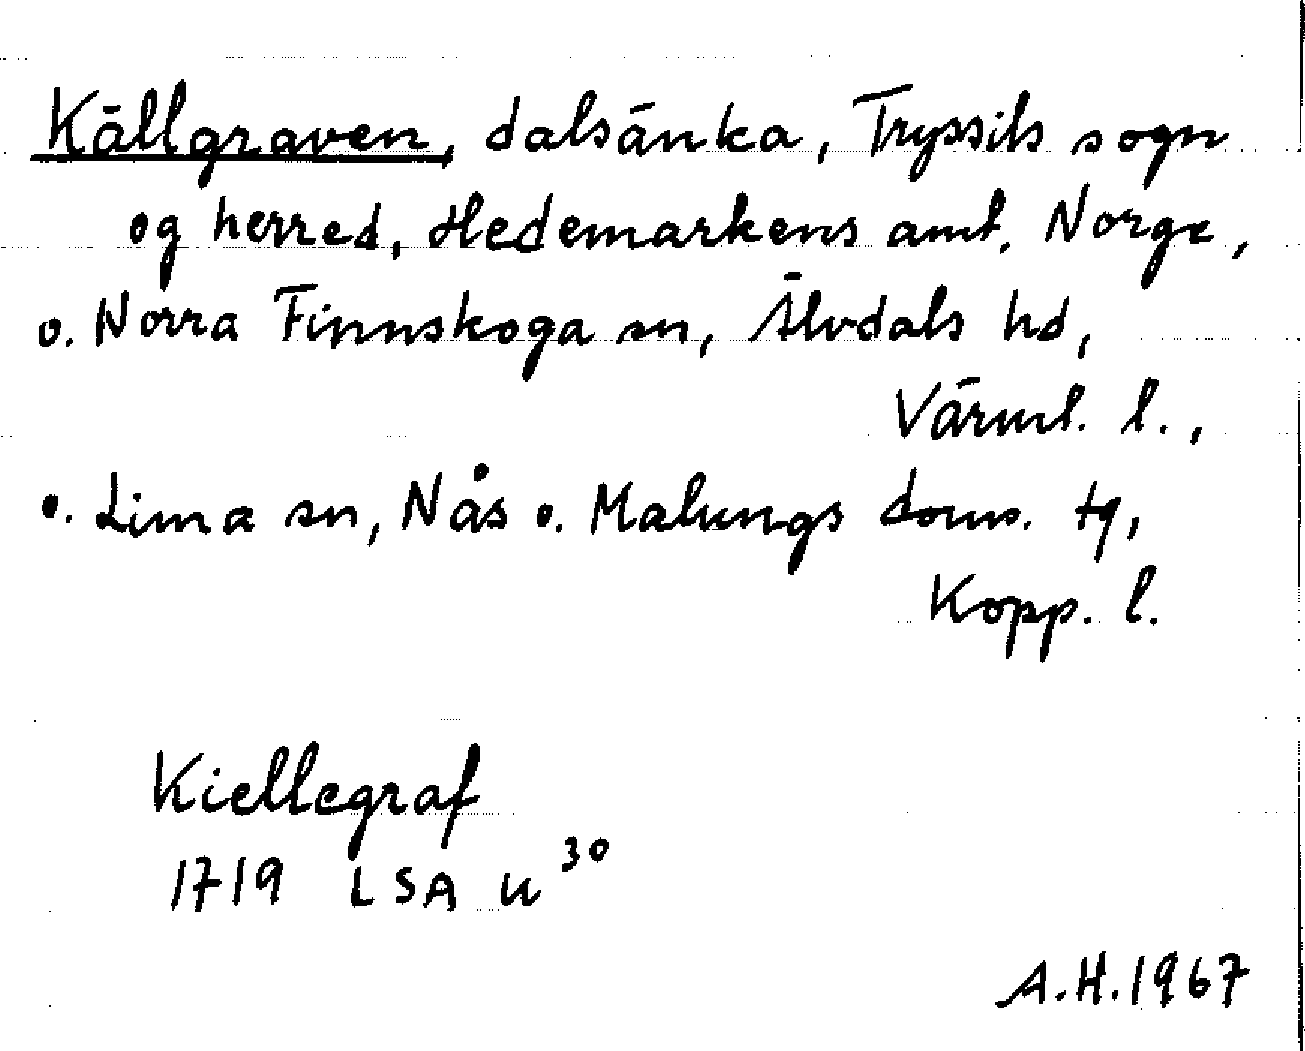 Källgraven, dalsänka, Tryssils sogn
og herred, Hedemarkens amt, Norge,
o. Norra Finnskoga sn, Älvdals hd,
Värml. l.,
o. Lima sn, Nås o. Malungs doms. tg,
Kopp. l.
Kiellegraf
1719 LSA u 30
A.H. 1967